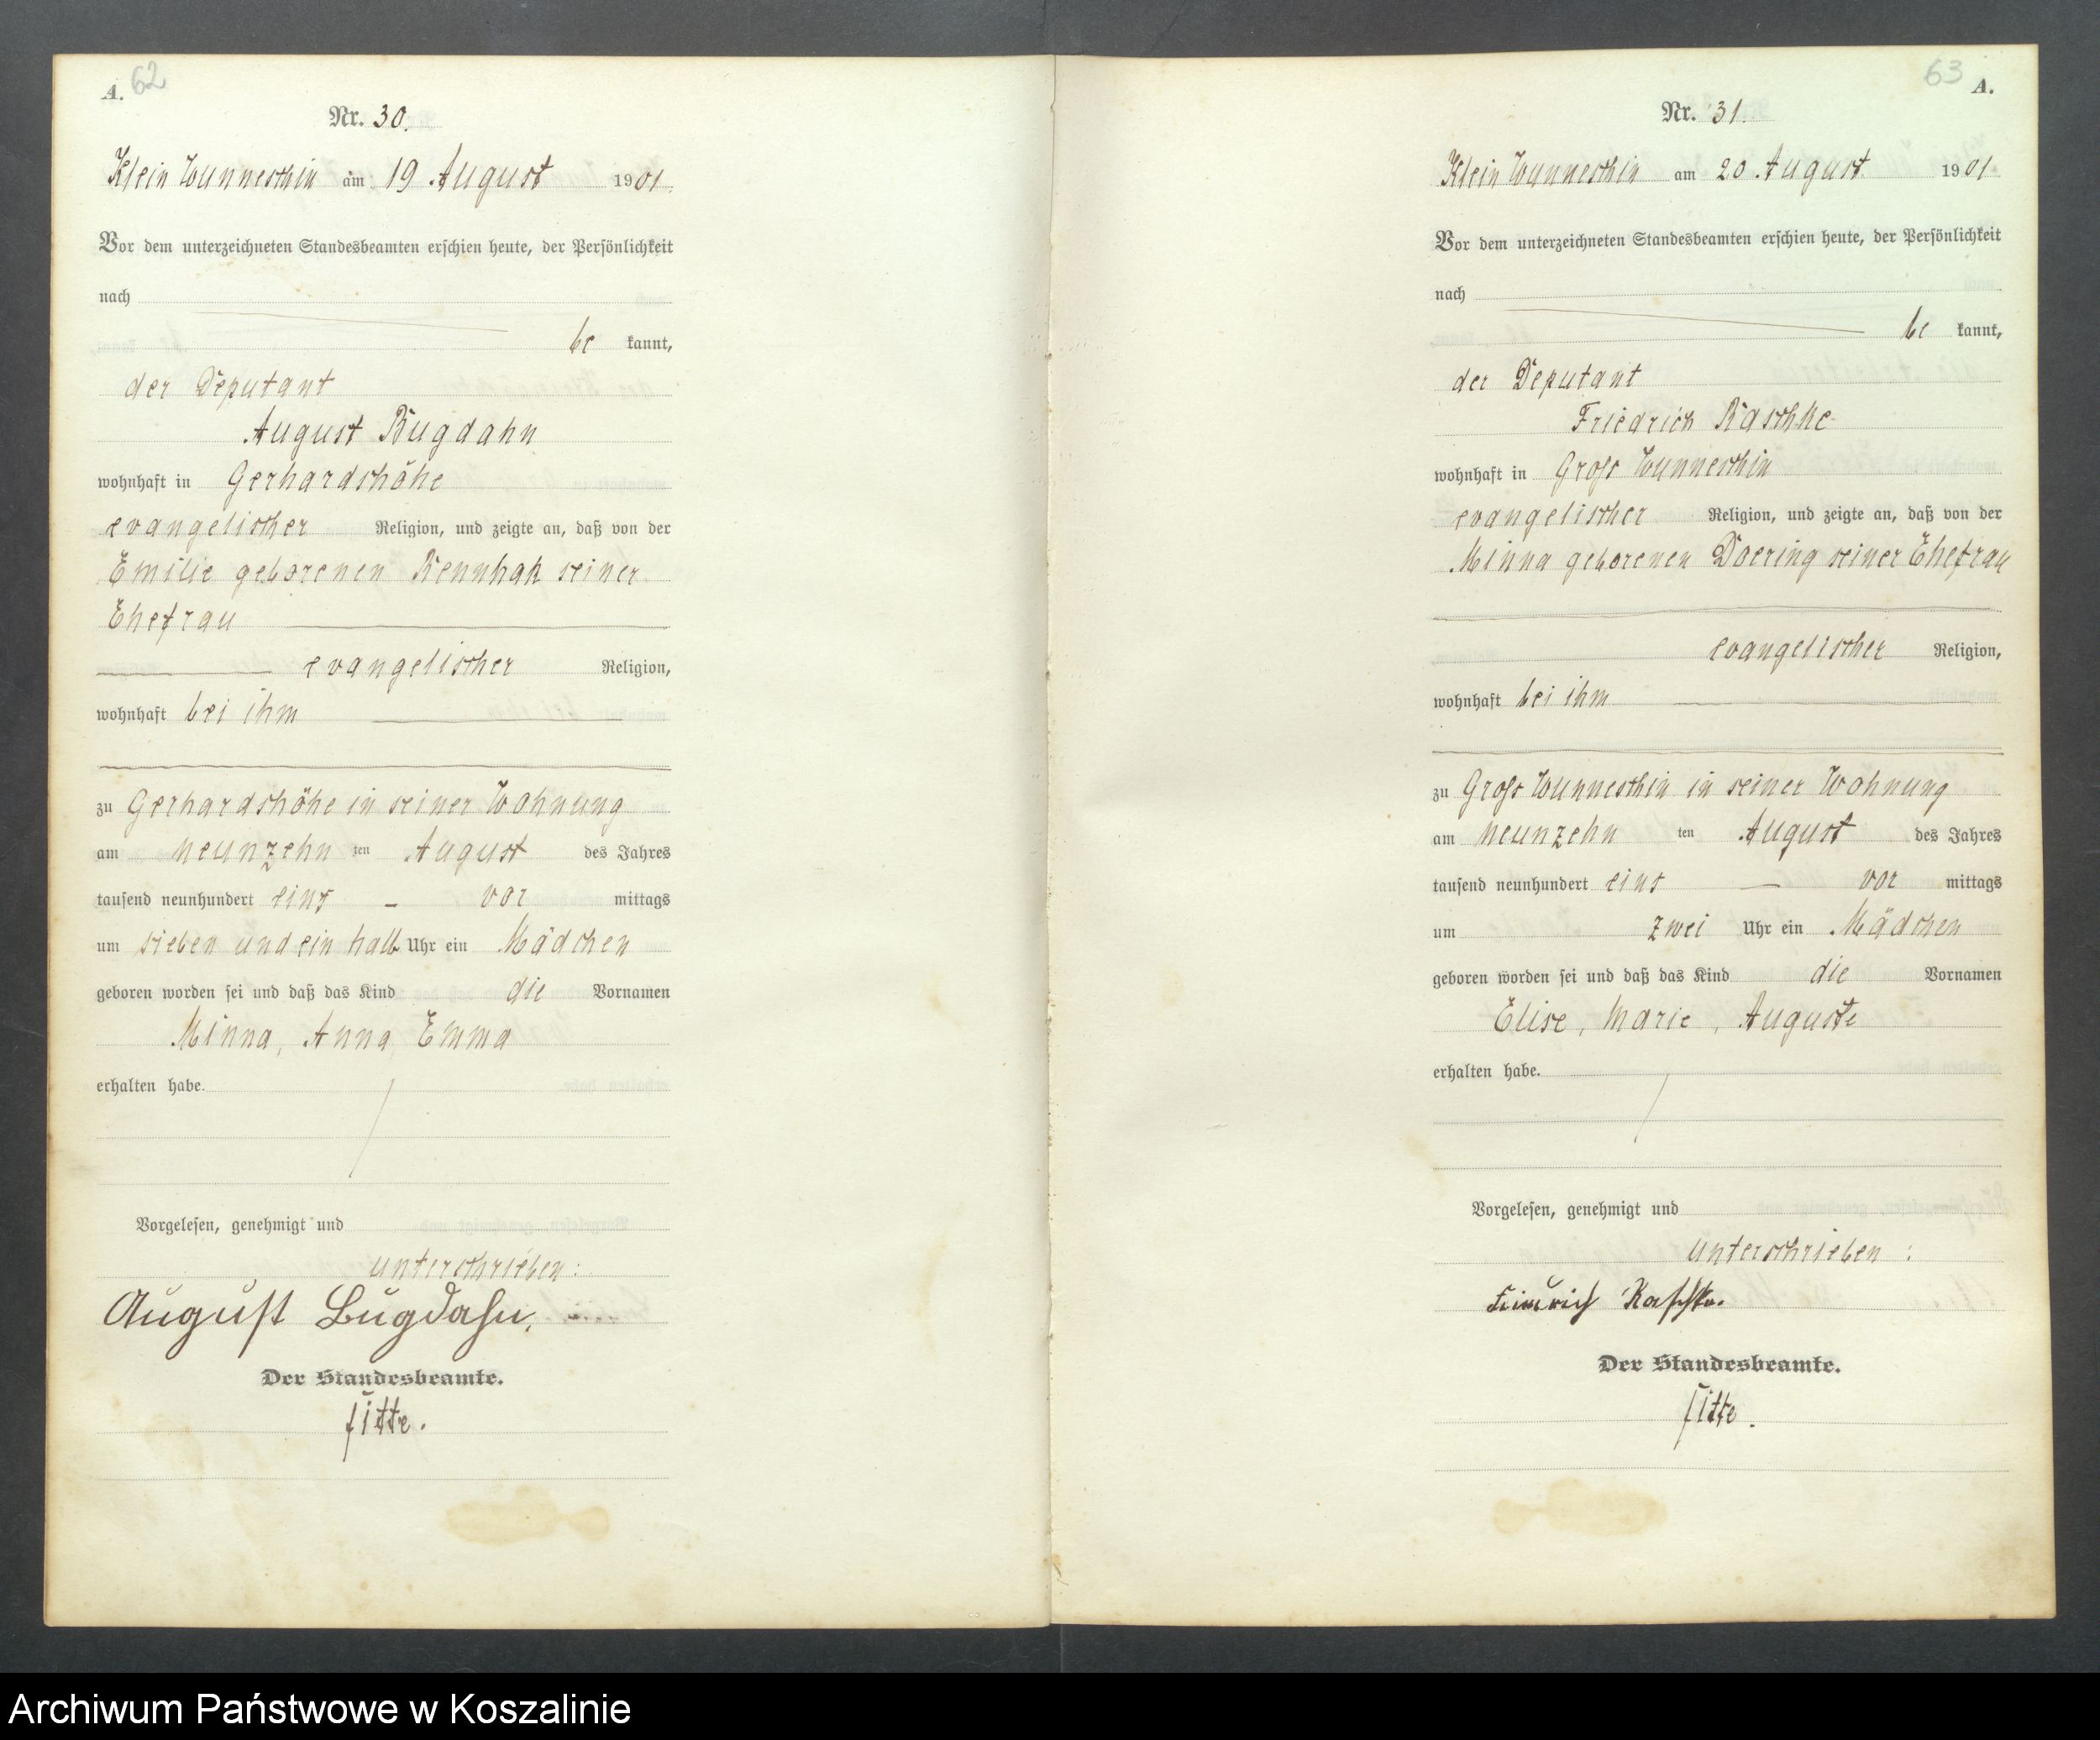 A. 62
Nr. 30.
Klein Wunneschin am 19 August 1901.
Vor dem unterzeichneten Standesbeamten erschien heute, der Persönlichkeit
nach
be kannt,
der Deputant
August Bugdahn
wohnhaft in Gerhardshöhe
evangelischer Religion, und zeigte an, daß von der
Emilie geborenen Rennhak seiner
Ehefrau
evangelischer Religion,
wohnhaft bei ihm
zu Gerhardshöhe in seiner Wohnung
am neunzehn ten August des Jahres
tausend neunhundert eins – vor mittags
um sieben und ein halb Uhr ein Mädchen
geboren worden sei und daß das Kind die Vornamen
Minna, Anna Emma
erhalten habe.
Vorgelesen, genehmigt und
unterschrieben:
August Bugdahn.
Der Standesbeamte.
Titte.
63 A.
Nr. 31.
Klein Wunneschin am 20 August 1901
Vor dem unterzeichneten Standesbeamten erschien heute, der Persönlichkeit
nach
be kannt,
der Deputant
Friedrich Raschke
wohnhaft in Gross Wunneschin
evangelischer Religion, und zeigte an, daß von der
Minna geborenen Doering seiner Ehefrau
evangelischer Religion,
wohnhaft bei ihm
zu Gross Wunneschin in seiner Wohnung
am neunzehn ten August des Jahres
tausend neunhundert eins — vor mittags
um zwei Uhr ein Mädchen
geboren worden sei und daß das Kind die Vornamen
Elise, Marie, Auguste
erhalten habe.
Vorgelesen, genehmigt und
unterschrieben:
Raschke.
Der Standesbeamte.
Titte.
Archiwum Państwowe w Koszalinie